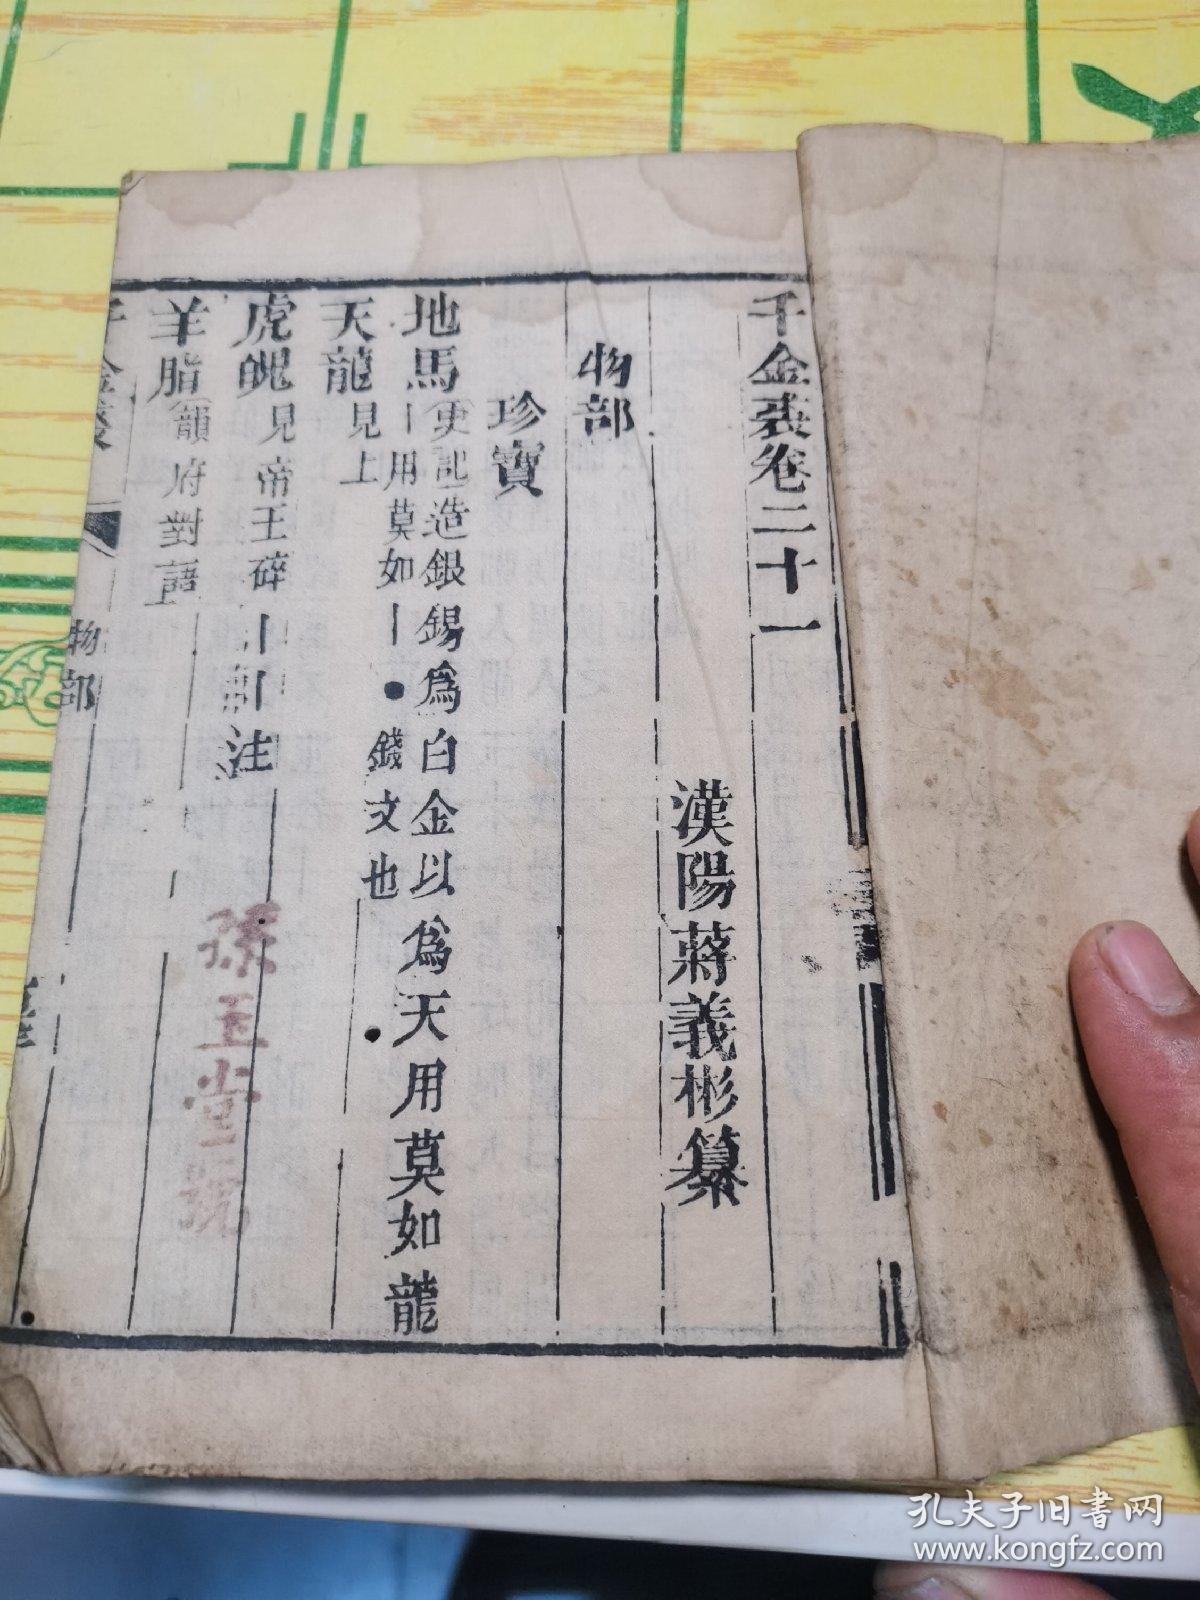 千金裘卷二十一
漢陽蔣義彬纂
物部
珍寶
地馬
史記造銀錫爲白金以爲天用莫如龍
丨用莫如丨●錢文也
天龍見上
虎魄見帝王碎丨丨注
羊脂韻府對語
千金裘
物部
孫玉堂號
孔夫子旧书网
www.kongfz.com